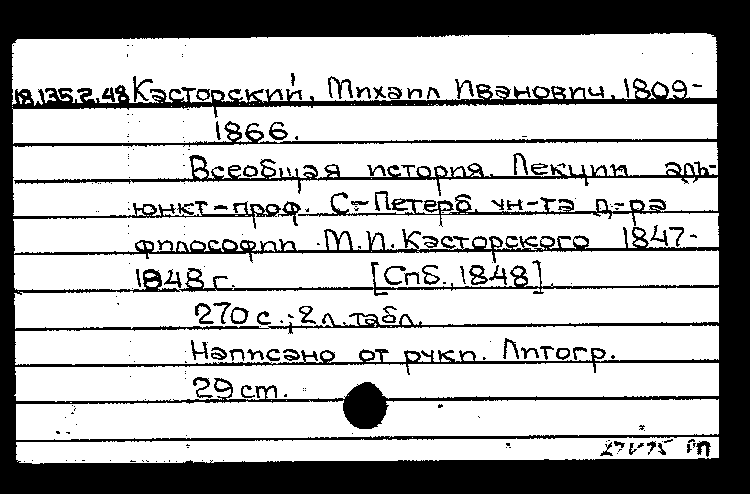 18.135.2.48 Касторский, Михаил Иванович, 1809-
1866.
Всеобщая история. Лекции адъ-
юнкт-проф. С.-Петерб. ун-та д-ра
философии М.И.Касторского 1847-
1848 г. [Спб., 1848].
270 с.; 2 л. табл.
Написано от руки. Литогр.
29 см.
27 V 75